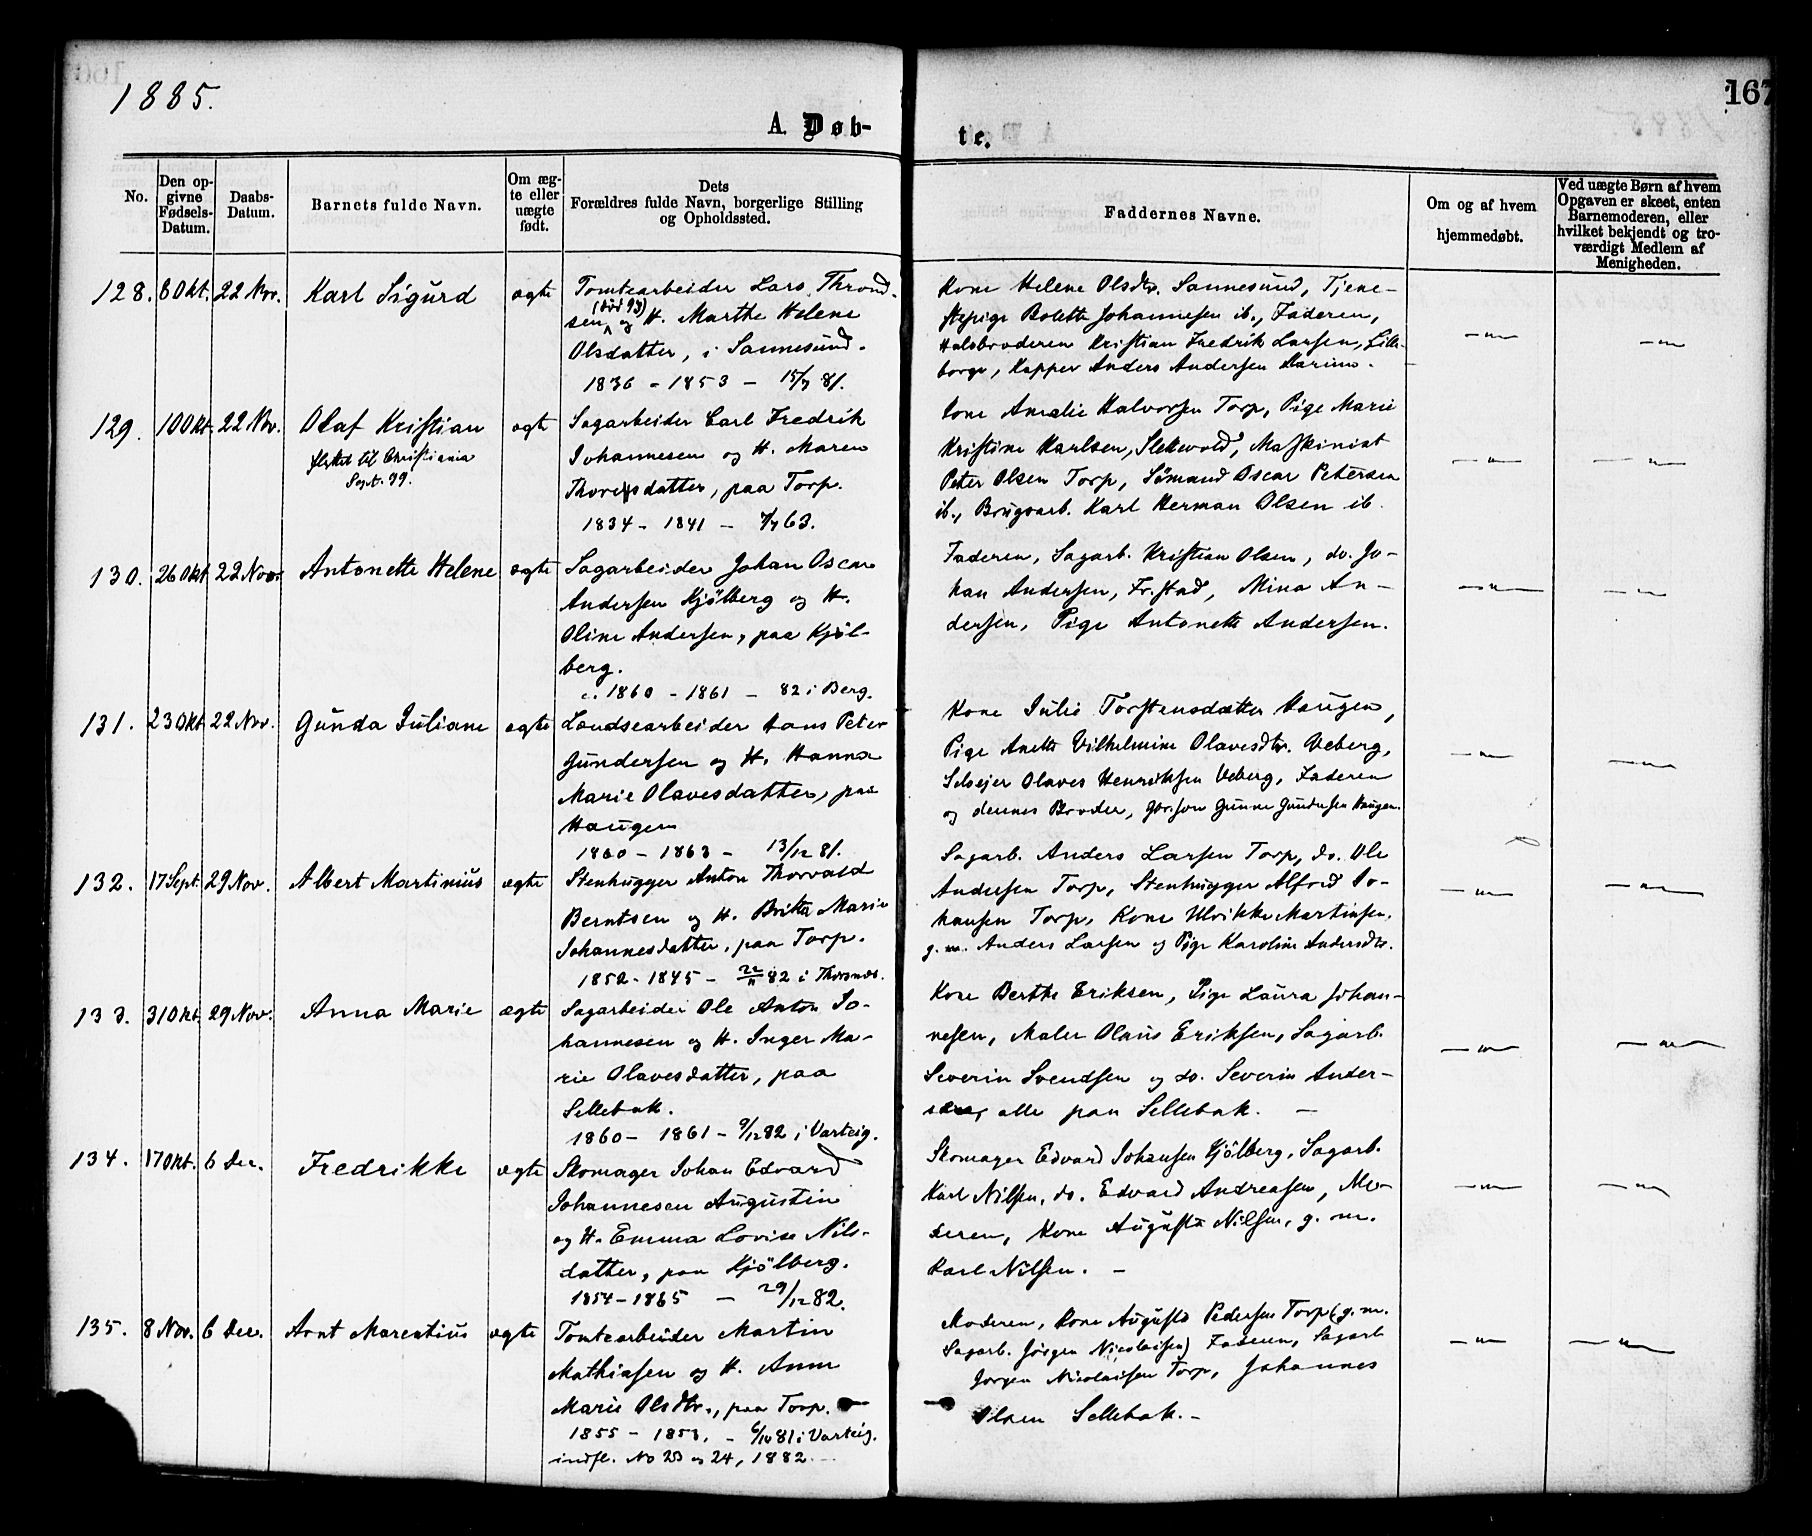 1885.
167
A. Døb-
te.
No.
Den op-
givne
Fødsels-
Datum.
Daabs-
Datum.
Barnets fulde Navn.
Om æg-
te eller
uægte
født.
Dets
Forældres fulde Navn, borgerlige Stilling
og Opholdssted.
Faddernes Navne.
Om og af hvem
hjemmedøbt.
Ved uægte Børn af hvem
Opgaven er skeet, enten
Barnemoderen, eller
hvilket bekjendt og tro-
værdigt Medlem af
Menigheden.
128. 6 Okt. 22 Nov. Karl Sigurd ægte
Tomtearbeider Lars Thrond-
sen og H. Marthe Helene
Olsdatter, i Sannesund.
1836 - 1853 - 15/7 81.
Kone Helene Olsdtr. Sannesund, Tjene-
stepige Bolette Johannesen ib., Faderen,
Halvbroderen Kristian Fredrik Larsen, Lille-
borge, Anders Andersen
— " —
— " —
129. 10 Okt. 22 Nov. Olaf Kristian ægte
flyttet til Christiania
Sept. 99.
Sagarbeider Carl Fredrik
Johannesen og H. Maren
Thoresdatter, paa Torp.
1834 - 1841 - 63.
Kone Amalie Halvorsen Torp, Pige Marie
Kristine Karlsen, Slettevold, Maskinist
Peter Olsen Torp, Sömand Oscar Petersen
ib., Brugsarb. Karl Herman Olsen ib.
— " —
— " —
130. 26 Okt 22 Nov. Antonette Helene ægte
Sagarbeider Johan Oscar
Andersen Kjölberg og H.
Oline Andersen, paa Kjöl-
berg.
c. 1860 - 1861 - 82 i Berg.
Faderen, Sagarb. Kristian Olsen, do. Jo-
han Andersen, Fr.stad, Mina An-
dersen, Pige Antonette Andersen.
— " —
— " —
131. 23 Okt 22 Nov. Gunda Juliane ægte
Londsearbeider Hans Peter
Gundersen og H. Hanna
Marie Olavesdatter, paa
Haugen
1860 - 1863 - 13/12 81.
Kone Julie Torstensdatter Haugen,
Pige Anette Vilhelmine Olavesdtr. Veberg,
Selvejer Olaves Henriksen Veberg, Faderen
og dennes Broder, Gunne Gundersen Haugen.
— " —
— " —
132. 17 Sept. 29 Nov. Albert Martinius ægte
Stenhugger Anton Thorvald
Berntsen og H. Britta Marie
Johannesdatter, paa Torp.
1852 - 1845 - 22/11 82 i Thorsnæs.
Sagarb. Anders Larsen Torp, do. Ole
Andersen Torp, Stenhugger Alfred Jo-
hansen Torp, Kone Ulrikke Martinsen,
g. m. Anders Larsen og Pige Karoline Andersdtr.
— " —
— " —
133. 31 Okt. 29 Nov. Anna Marie ægte
Sagarbeider Ole Anton Jo-
hannesen og H. Inger Ma-
rie Olavesdatter, paa
Sellebak.
1860 - 1861 - 9/12 82 i Varteig.
Kone Berthe Eriksen, Pige Laura Johan-
nesen, Maler Olaus Eriksen, Sagarb.
Severin Svendsen og do. Severin Ander-
sen, alle paa Sellebak. —
— " —
— " —
134. 17 Okt. 6 Dec. Fredrikke ægte
Skomager Johan Edvard
Johannesen Augustin
og H. Emma Lovise Nils-
datter, paa Kjölberg.
1854 - 1865 - 29/12 82.
Skomager Edvard Johansen Kjölberg, Sagarb.
Karl Nilsen, do. Edvard Andreasen, Mo-
deren, Kone Augusta Nilsen, g. m.
Karl Nilsen. —
— " —
— " —
135. 8 Nov. 6 Dec. Arnt Marentius ægte
Tomtearbeider Martin
Mathiasen og H. Anne
Marie Olsdtr., paa Torp. —
1855 - 1853. - 6/10 81 i Varteig.
indfl. No 23 og 24, 1882. —
Moderen, Kone Augusta Pedersen Torp (g. m.
Sagarb. Jörgen Nicolaisen) Faderen, Sagarb
Jorgen Nicolaisen Torp, Johannes
Olsen Sellebak. —
— " —
— " —